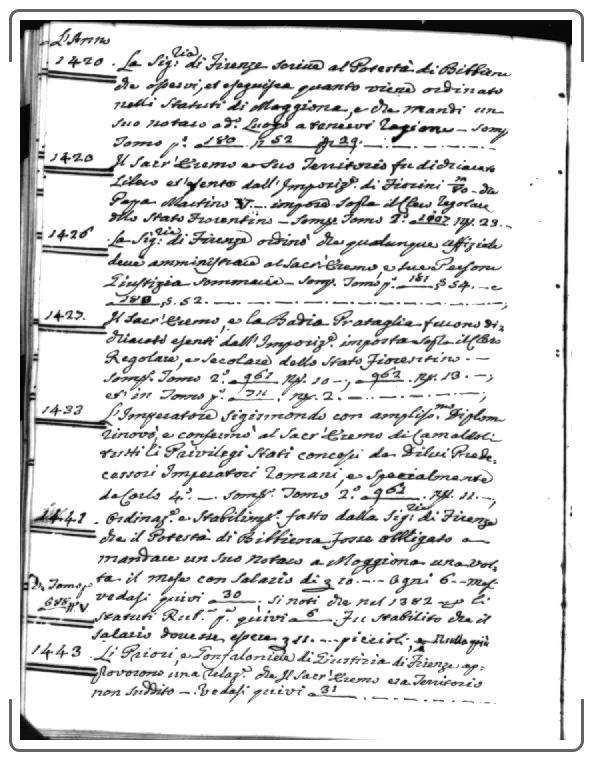 L'Anno
1420. La Sig:ria di Firenze scrive al Potestà di Bibbiena
che osservi, et eseguisca quanto viene ordinato
nelli Statuti di Moggiona, e che mandi un
suo notaro ad.o Luogo a tenervi ragione – Somm
Tomo p.o 180 n 52 pp. 29.
1420 Il Sacr'Eremo e suo Territorio fu dichiarato
Libero et esento dall'Imposiz.e di Fiorini m/80 che
Papa Martino V. impose sopra il Clero regolare
dello Stato Fiorentino – Somm. Tomo 2.o 1007 pp. 23.
1426 La Sig:ria di Firenze ordinò che qualunque Offiziale
deve amministrare al Sacr'Eremo, e sue Persone
Giustizia Sommaria – Somm. Tomo p.o 181 § 54. – e
180, §. 52.
1427. Il Sacr'Eremo, e la Badia Prataglia furono di-
chiarati esenti dall'Imposiz.e imposta sopra il Clero
Regolare, e secolare dello Stato Fiorentino. –
Somm. Tomo 2.o 961 pp. 10 –; 962 pp. 13 –;
et in Tomo p.o 711 pp. 2
1433 L'Imperatore Sigismondo con ampliss.mo Diplom
rinovò, e confermò al Sacr'Eremo di Camaldoli
tutti li Privilegi Stati concessi da Dilui Prede-
cessori Imperatori Romani, e Specialmente
da Carlo 4.o – Somm. Tomo 2.o 961 pp. 11 –;
1441. Ordinaz.e e Stabilim.o fatto dalla Sig:ria di Firenze
che il Potestà di Bibbiena fosse obbligato a
mandare un suo Notaro a Moggiona una vol-
ta il mese con salario di 20 Ogni 6 mesi
vedasi quivi 30 si noti che nel 1382 li
Statuti Rub.a p.a quivi 6 Fu stabilito che il
Salario dovesse essere 11. piccioli, e Nulla più
Tomo p.o
688 n.o V.
1443 Li Priori, e Gonfaloniere di Giustizia di Firenze ap-
provorono una relaz.e che Il Sacr'Eremo era Territorio
non suddito – Vedasi quivi 31